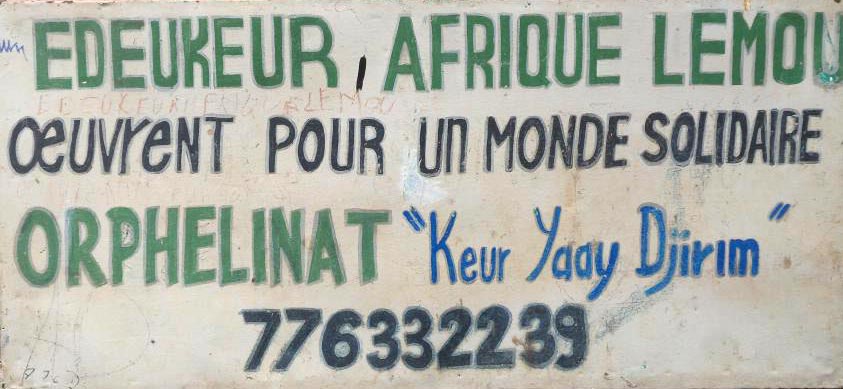 EDEUKEUR, AFRIQUE LEMOU
œuvrent POUR un MONDE SOLIDAIRE
ORPHELINAT "Keur Yaay Djirim"
776332239